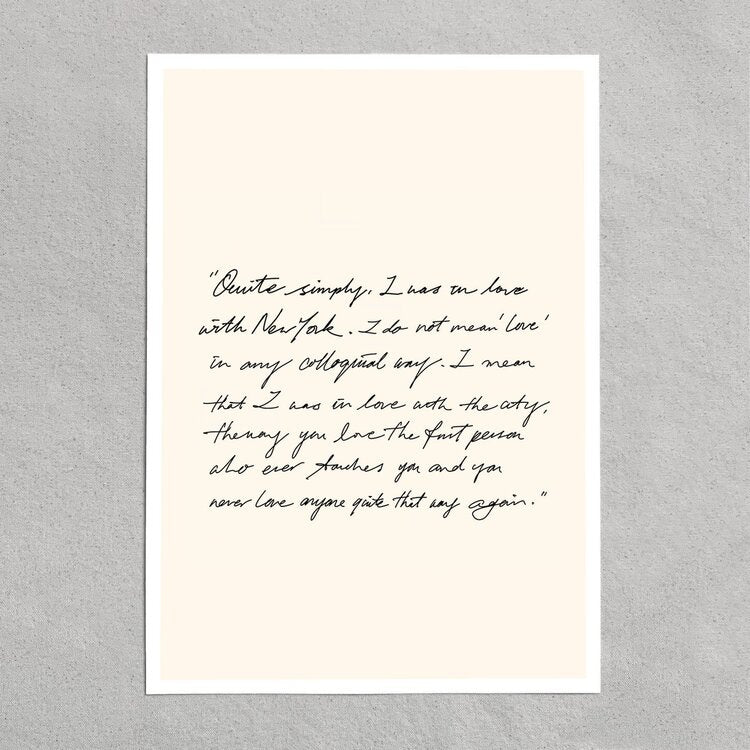 "Quite simply, I was in love
with New York. I do not mean 'Love'
in any colloquial way. I mean
that I was in love with the city,
the way you love the first person
who ever touches you and you
never love anyone quite that way again."